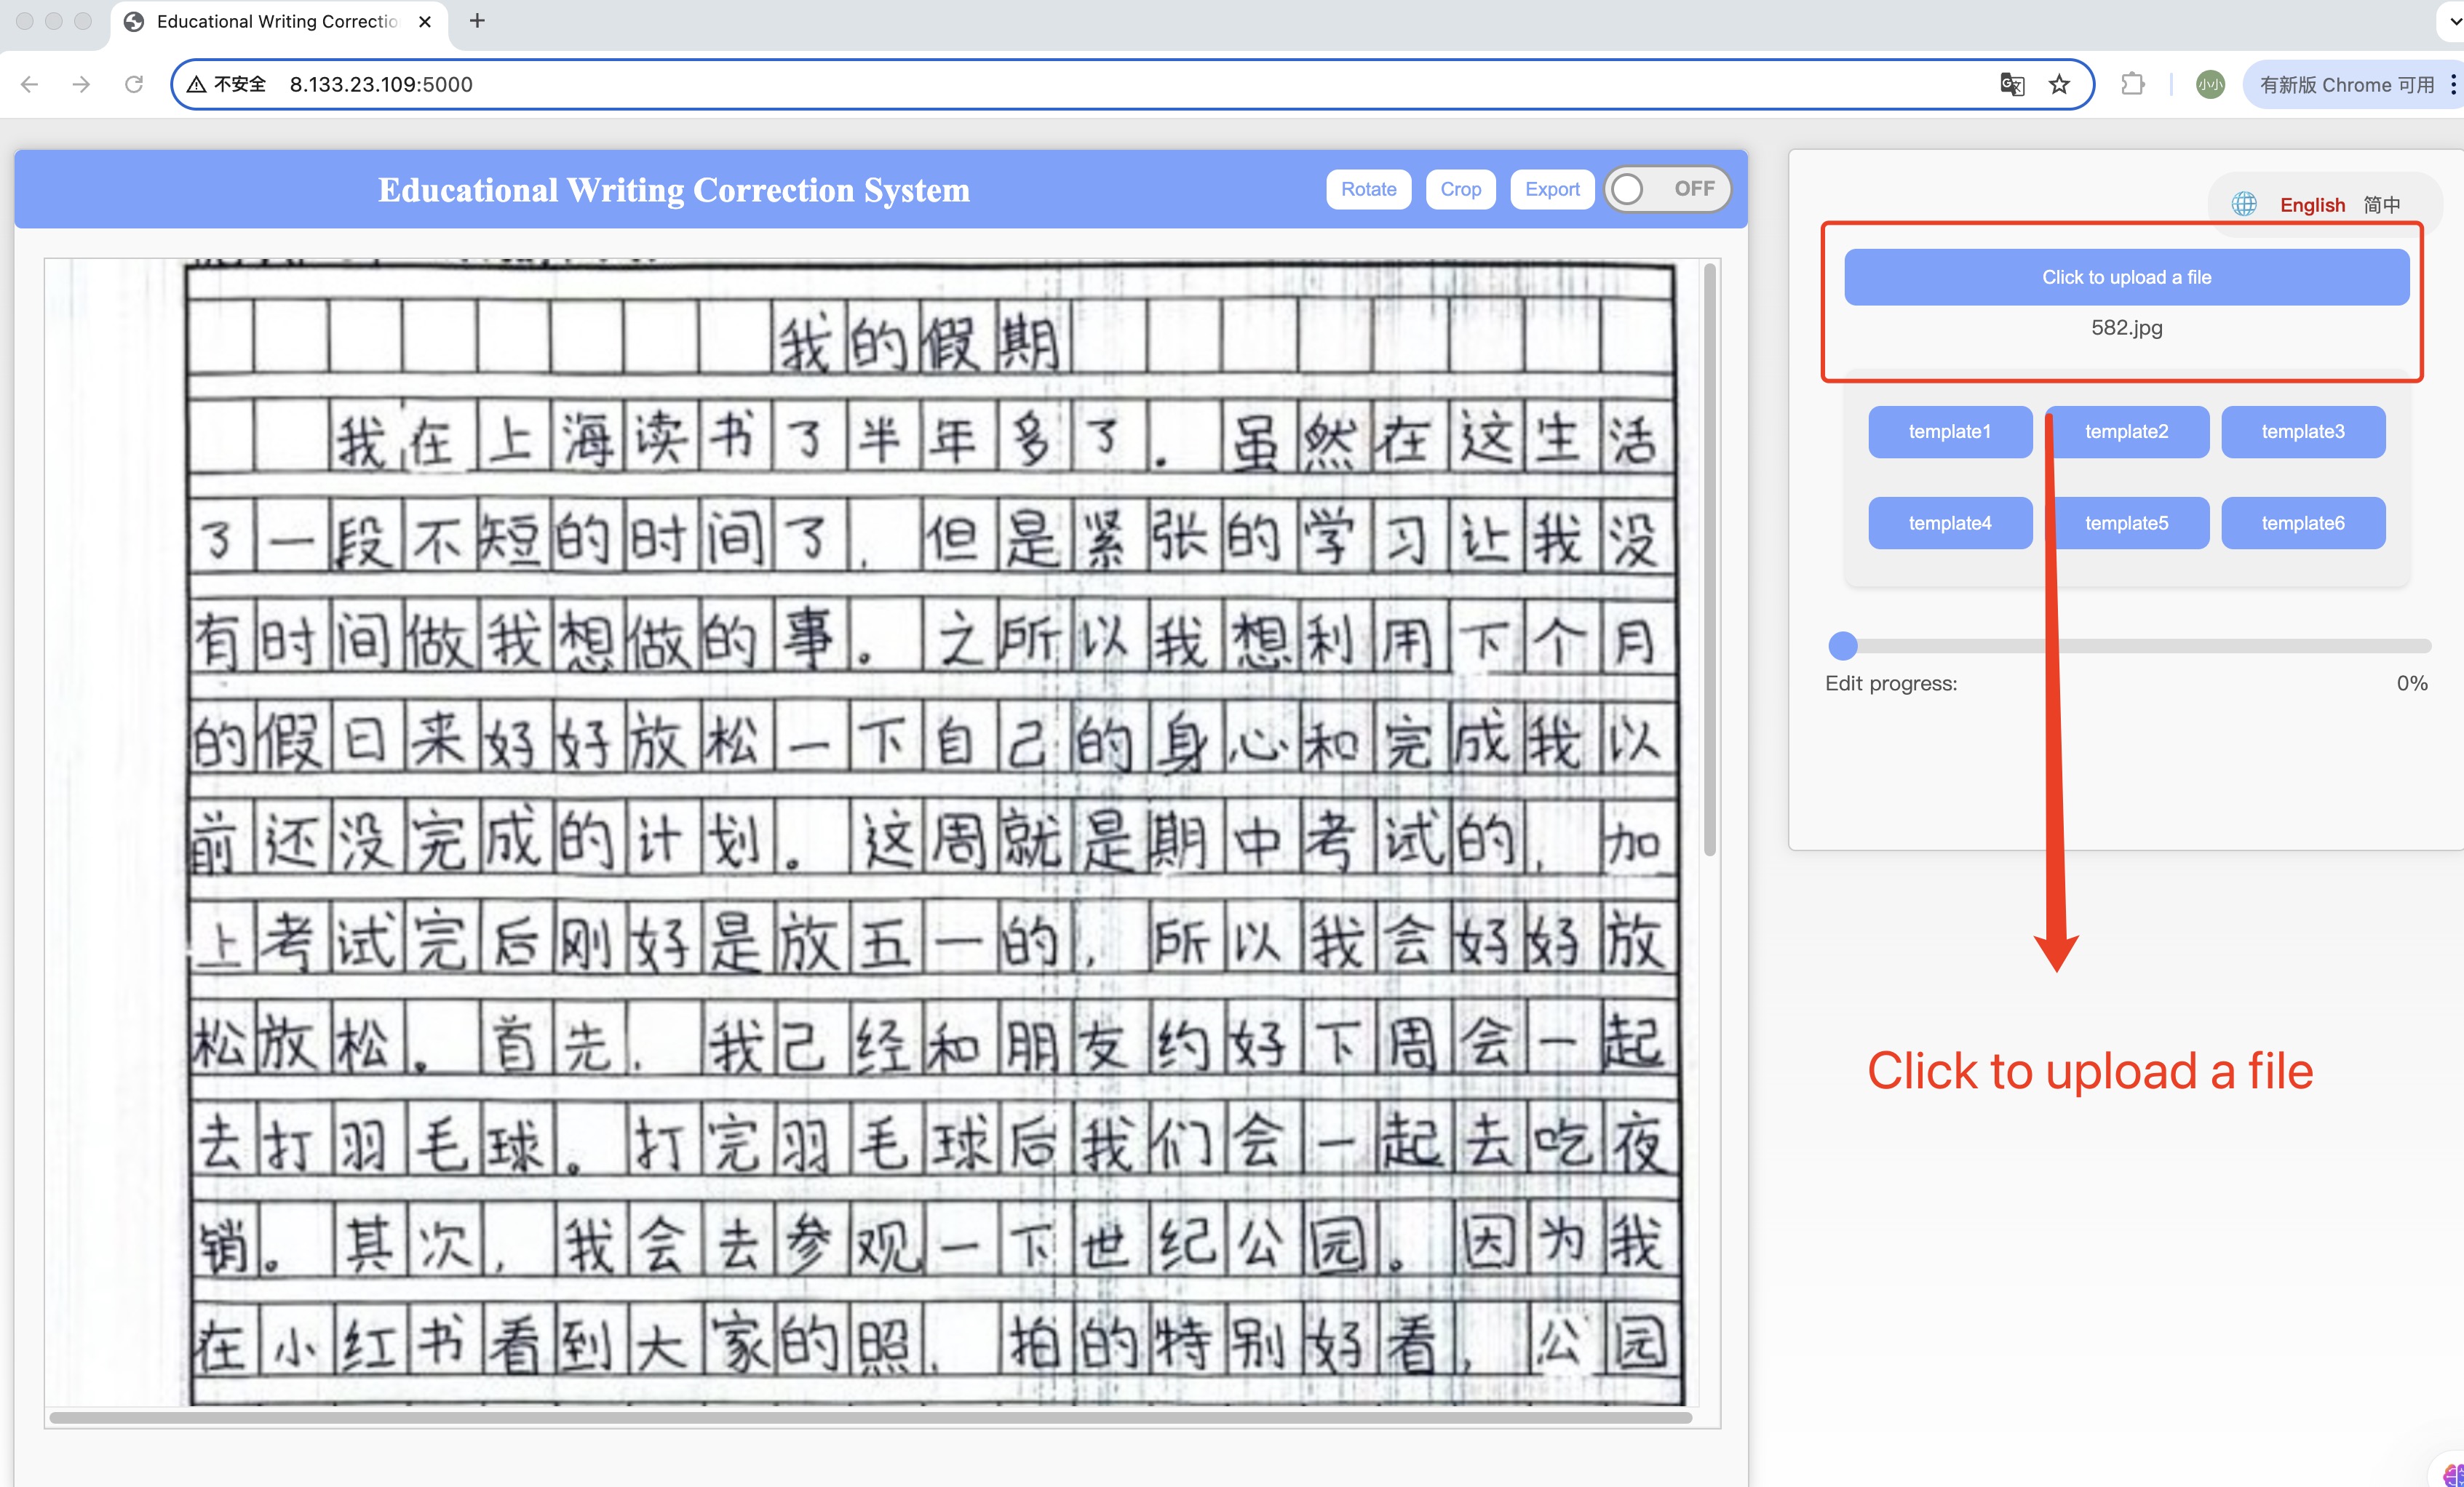 Educational Writing Correctio
不安全 8.133.23.109:5000
小小
有新版 Chrome 可用
Educational Writing Correction System
Rotate
Crop
Export
OFF
我的假期
我在上海读书了半年多了. 虽然在这生活
了一段不短的时间了, 但是紧张的学习让我没
有时间做我想做的事。之所以我想利用下个月
的假日来好好放松一下自己的身心和完成我以
前还没完成的计划。这周就是期中考试的, 加
上考试完后刚好是放五一的, 所以我会好好放
松放松。首先, 我己经和朋友约好下周会一起
去打羽毛球。打完羽毛球后我们会一起去吃夜
销。其次, 我会去参观一下世纪公园。因为我
在小红书看到大家的照, 拍的特别好看, 公园
English 简中
Click to upload a file
582.jpg
template1
template2
template3
template4
template5
template6
Edit progress: 0%
Click to upload a file